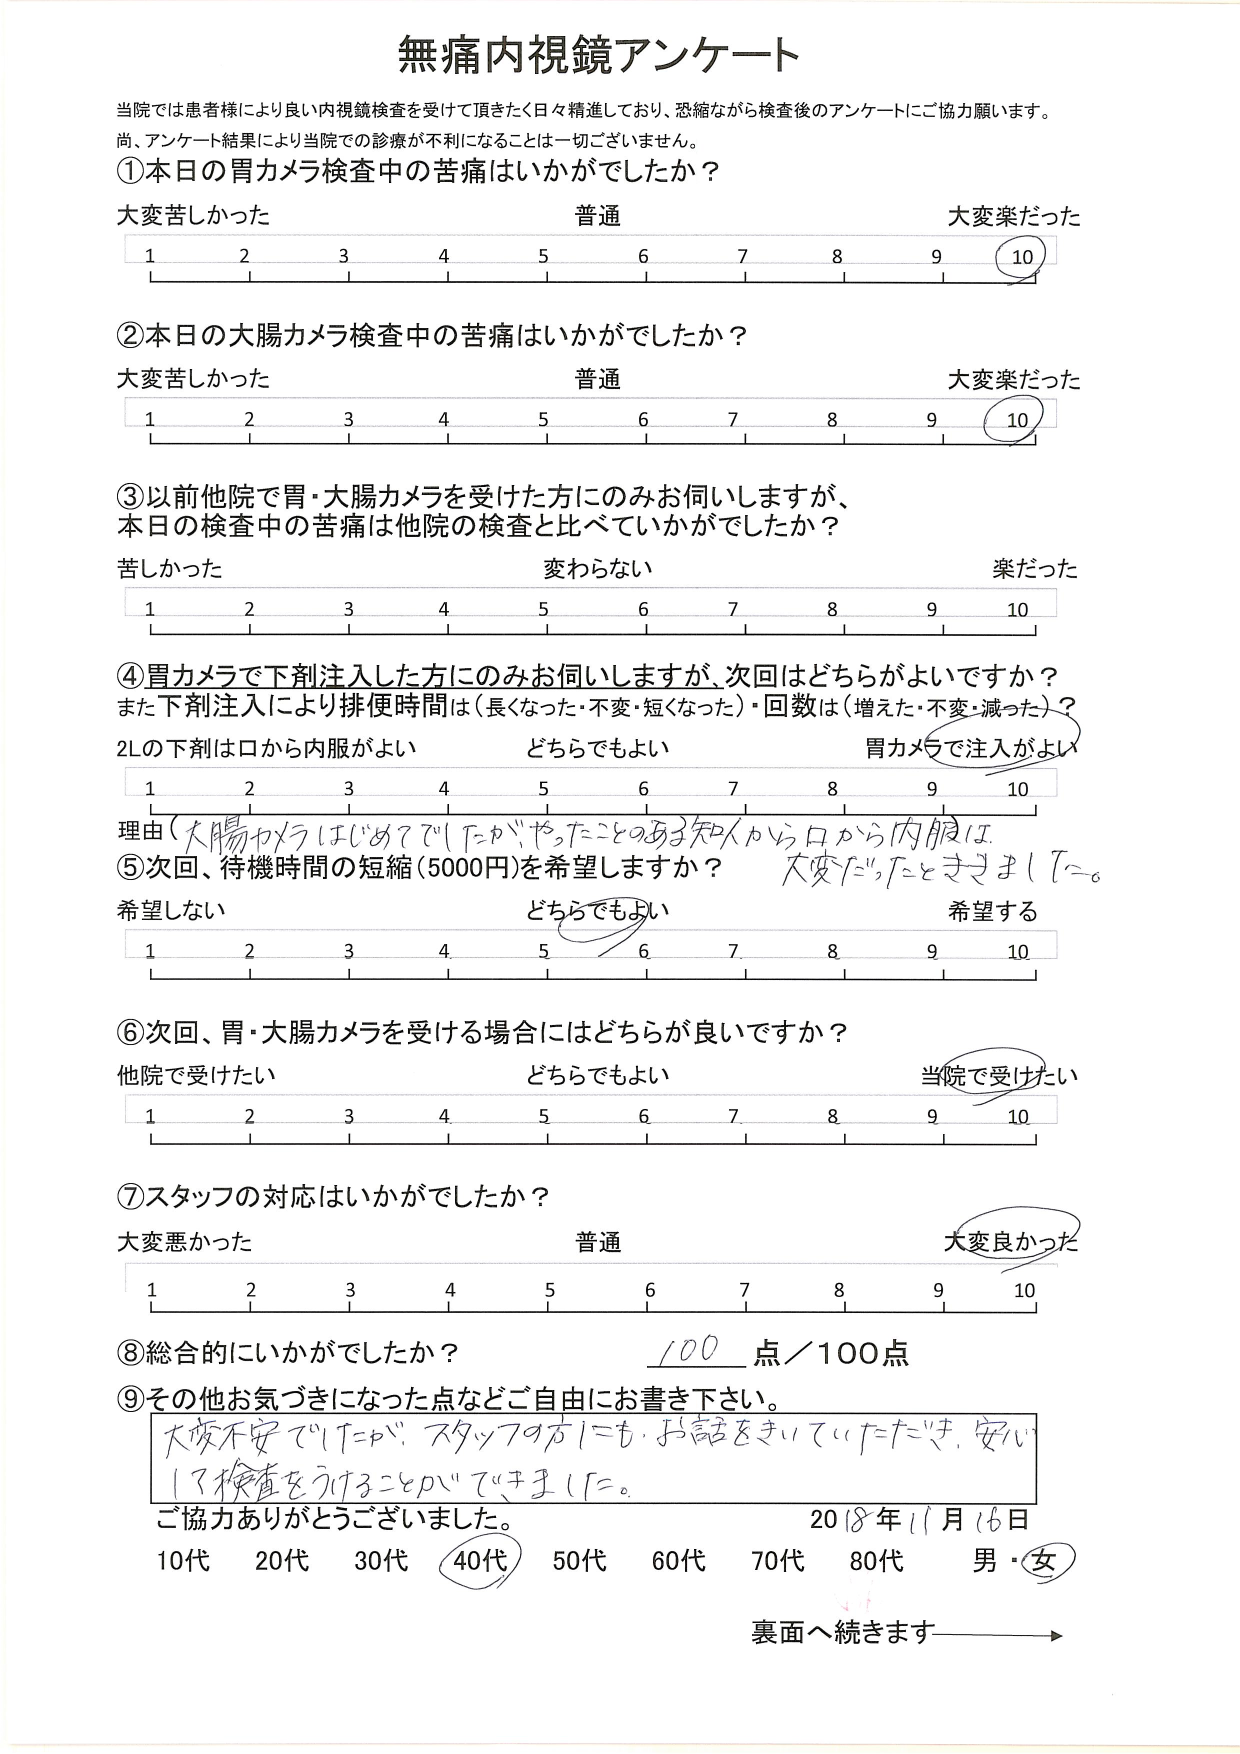 無痛内視鏡アンケート
当院では患者様により良い内視鏡検査を受けて頂きたく日々精進しており、恐縮ながら検査後のアンケートにご協力願います。
尚、アンケート結果により当院での診療が不利になることは一切ございません。
①本日の胃カメラ検査中の苦痛はいかがでしたか？
大変苦しかった 普通 大変楽だった
1 2 3 4 5 6 7 8 9 10
②本日の大腸カメラ検査中の苦痛はいかがでしたか？
大変苦しかった 普通 大変楽だった
1 2 3 4 5 6 7 8 9 10
③以前他院で胃・大腸カメラを受けた方にのみお伺いしますが、
本日の検査中の苦痛は他院の検査と比べていかがでしたか？
苦しかった 変わらない 楽だった
1 2 3 4 5 6 7 8 9 10
④胃カメラで下剤注入した方にのみお伺いしますが、次回はどちらがよいですか？
また下剤注入により排便時間は（長くなった・不変・短くなった）・回数は（増えた・不変・減った）？
2Lの下剤は口から内服がよい どちらでもよい 胃カメラで注入がよい
1 2 3 4 5 6 7 8 9 10
理由（大腸カメラはじめてでしたが、やったことのある知人から口から内服は
⑤次回、待機時間の短縮（5000円）を希望しますか？ 大変だったとききました。
希望しない どちらでもよい 希望する
1 2 3 4 5 6 7 8 9 10
⑥次回、胃・大腸カメラを受ける場合にはどちらが良いですか？
他院で受けたい どちらでもよい 当院で受けたい
1 2 3 4 5 6 7 8 9 10
⑦スタッフの対応はいかがでしたか？
大変悪かった 普通 大変良かった
1 2 3 4 5 6 7 8 9 10
⑧総合的にいかがでしたか？ 100 点／100点
⑨その他お気づきになった点などご自由にお書き下さい。
大変不安でしたが、スタッフの方にも、お話をきいていただき、安心
して検査をうけることができました。
ご協力ありがとうございました。 2018年11月16日
10代 20代 30代 40代 50代 60代 70代 80代 男・女
裏面へ続きます